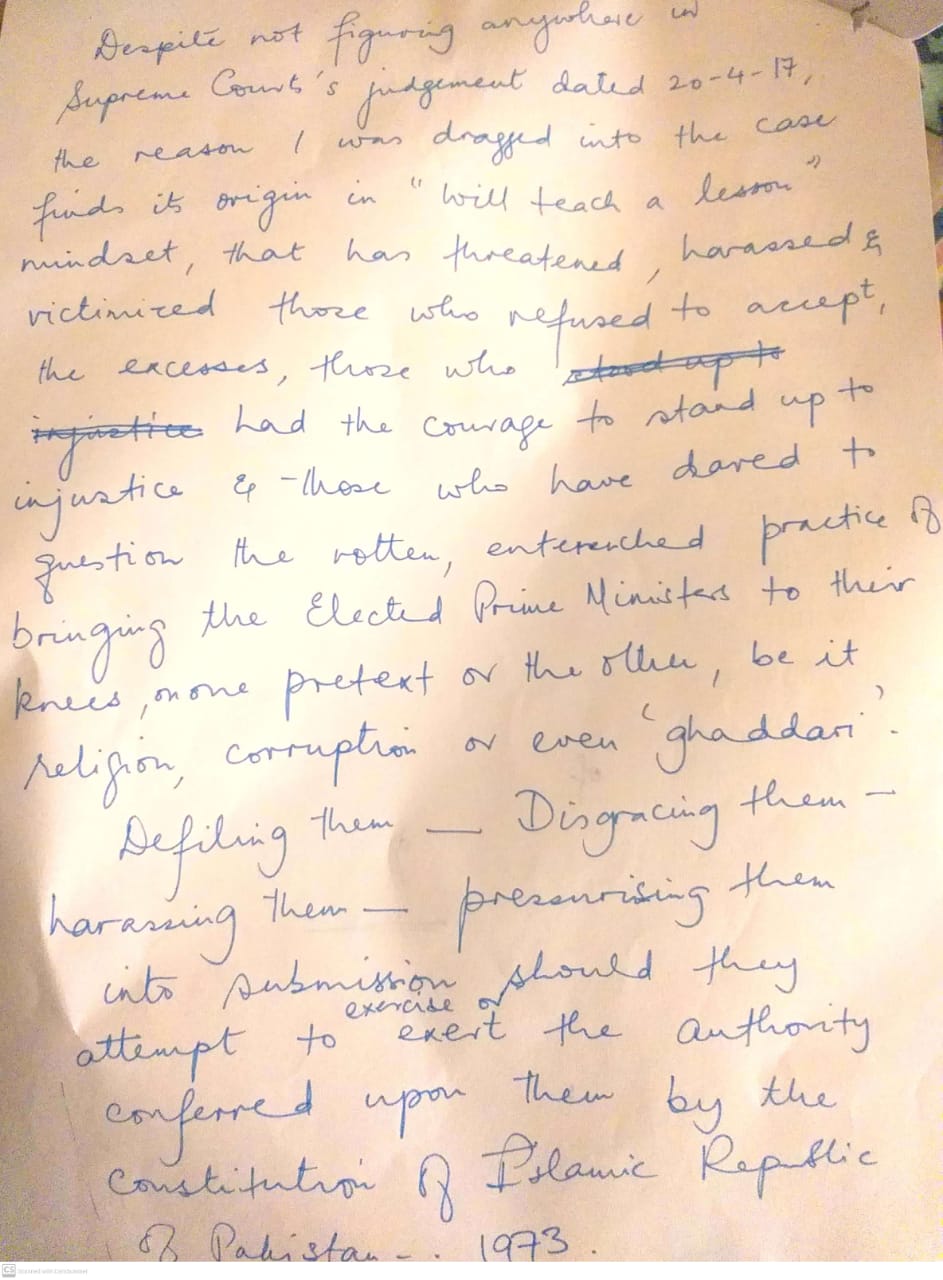 Despite not figuring anywhere in
Supreme Court's judgement dated 20-4-17,
the reason I was dragged into the case
finds its origin in "will teach a lesson"
mindset, that has threatened, harassed &
victimized those who refused to accept,
the excesses, those who stood up to
injustice had the courage to stand up to
injustice & those who have dared to
question the rotten, enterenched practice of
bringing the Elected Prime Ministers to their
knees, on one pretext or the other, be it
religion, corruption or even 'ghaddari'.
Defiling them — Disgracing them —
harassing them — pressurising them
into submission should they
exercise or
attempt to exert the authority
conferred upon them by the
Constitution of Islamic Republic
of Pakistan - . 1973.
CS Scanned with CamScanner